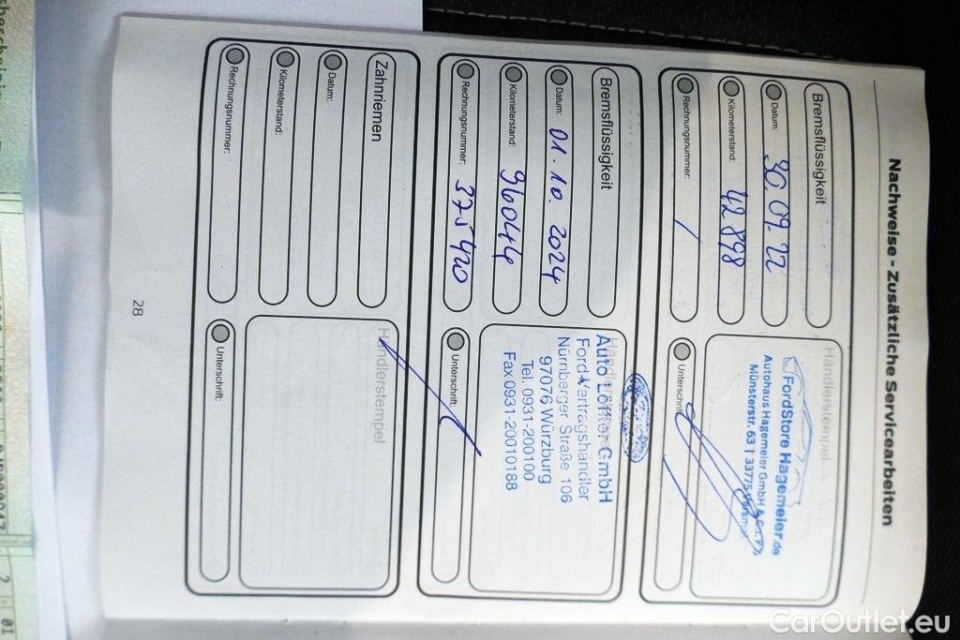 Nachweise - Zusätzliche Servicearbeiten
Bremsflüssigkeit
Datum: 30.09.22
Kilometerstand: 42 898
Rechnungsnummer: /
Händlerstempel
FordStore Hagemeier.de
Autohaus Hagemeier GmbH & Co.
Münsterstr. 63 | 33775
Unterschrift:
Bremsflüssigkeit
Datum: 01.10.2024
Kilometerstand: 96044
Rechnungsnummer: 375420
Auto Löffler GmbH
Ford-Vertragshändler
Nürnberger Straße 106
97076 Würzburg
Tel. 0931-200100
Fax 0931-20010188
Unterschrift:
Zahnriemen
Datum:
Kilometerstand:
Rechnungsnummer:
Händlerstempel
Unterschrift:
28
CarOutlet.eu